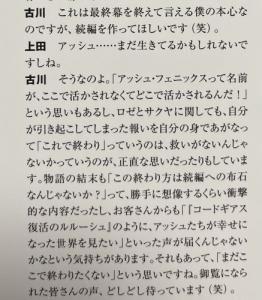 古川　これは最終幕を終えて言える僕の本心な
のですが、続編を作ってほしいです（笑）。
上田　アッシュ……まだ生きてるかもしれないで
すしね。
古川　そうなのよ。「アッシュ・フェニックスって名前
が、ここで活かされなくてどこで活かされるんだ！」
という思いもあるし、ロゼとサクヤに関しても、自分
が引き起こしてしまった報いを自分の身であがなっ
て「これで終わり」っていうのは、救いがないんじゃ
ないかっていうのが、正直な思いだったりもしていま
す。物語の結末も「この終わり方は続編への布石
なんじゃないか？」って、勝手に想像するくらい衝撃
的な内容だったし、お客さんからも「『コードギアス
復活のルルーシュ』のように、アッシュたちが幸せにな
った世界を見たい」といった声が届くんじゃないか
なという気持ちがあります。それもあって、「まだこ
こで終わりたくない」という思いですね。御覧になら
れた皆さんの声、どしどし待っています（笑）。